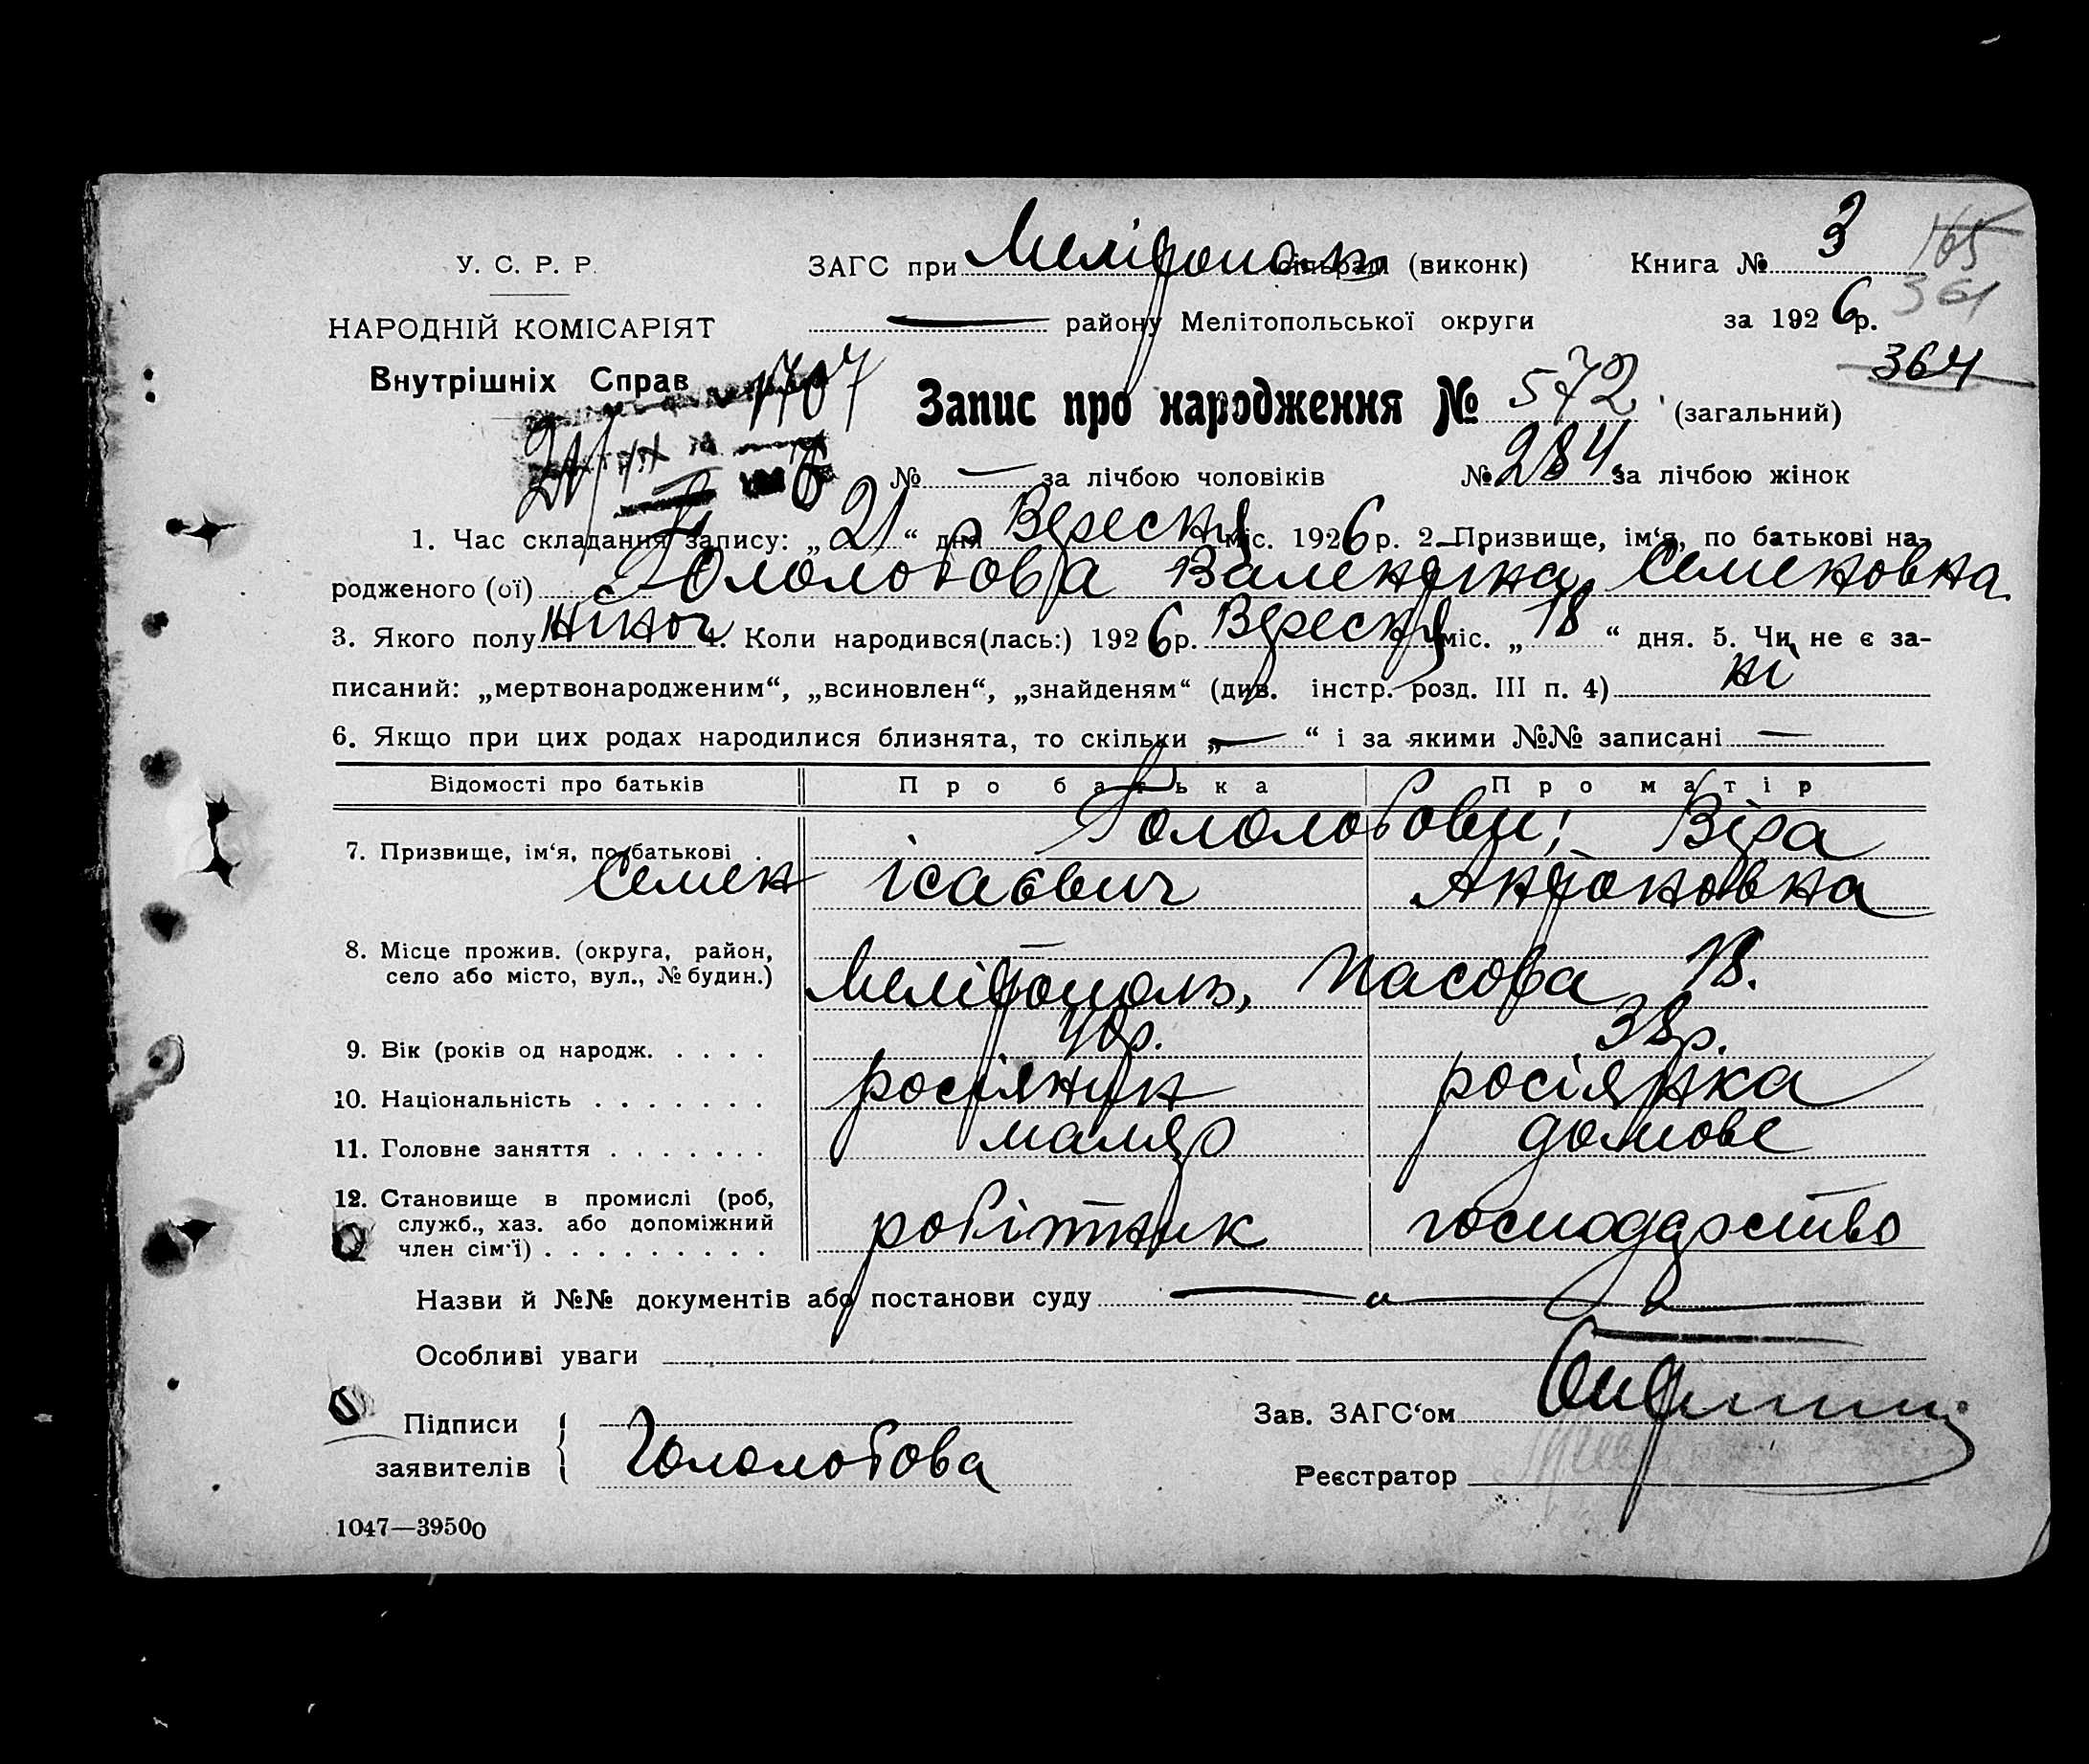 У. С. Р. Р.
ЗАГС при Мелітополь сільраді (виконк) Книга № 3
165
361
НАРОДНІЙ КОМІСАРІЯТ
— району Мелітопольської округи за 1926 р.
364
Внутрішніх Справ
1707
Запис про народження № 572 (загальний)
№ — за лічбою чоловіків № 284 за лічбою жінок
1. Час складання запису: „21“ дня Вересня міс. 1926 р. 2. Призвище, ім‘я, по батькові на-
родженого (ої) Гололобова Валентина Семеновна
3. Якого полу жіноч 4. Коли народився(лась:) 1926 р. Вересня міс. „18“ дня. 5. Чи не є за-
писаний: „мертвонародженим“, „всиновлен“, „знайденям“ (див. інстр. розд. III п. 4) ні
6. Якщо при цих родах народилися близнята, то скільки „—“ і за якими №№ записані —
Відомості про батьків Про батька Про матір
Гололобови; Віра
7. Призвище, ім‘я, по батькові .
Семен Ісаєвич Антоновна
8. Місце прожив. (округа, район,
село або місто, вул., № будин.) Мелітополь, Пасова 18.
9. Вік (років од народж. . . . . 40 р. 38 р.
10. Національність . . . . . . . росіянин росіянка
11. Головне заняття . . . . . . . маляр домове
12. Становище в промислі (роб,
служб., хаз. або допоміжний
член сім‘ї) . . . . . . . . . робітник господарство
Назви й №№ документів або постанови суду —
Особливі уваги
Підписи
заявителів Гололобова
Зав. ЗАГС‘ом
Реєстратор
1047—39500